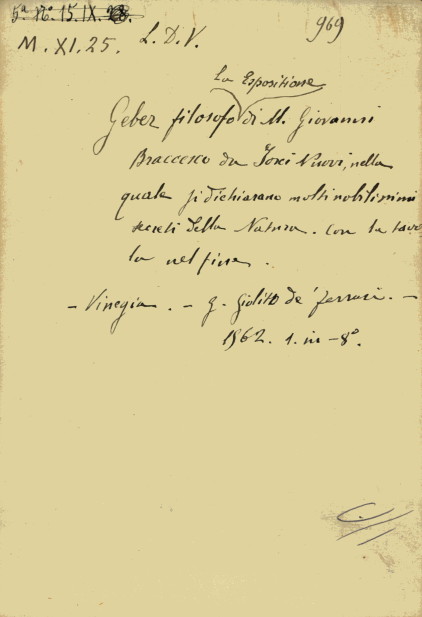 5ª Nº. 15. IX. 28.
969
M. XI. 25. L. D. V.
La Espositione
Geber filosofo di M. Giovanni
Braccesco da Jorci Nuovi, nella
quale si dichiarano molti nobilissimi
secreti della Natura. con la tavo
la nel fine.
- Vinegia. - G. Giolito de' Ferrari. -
1562. 1. in -8º.